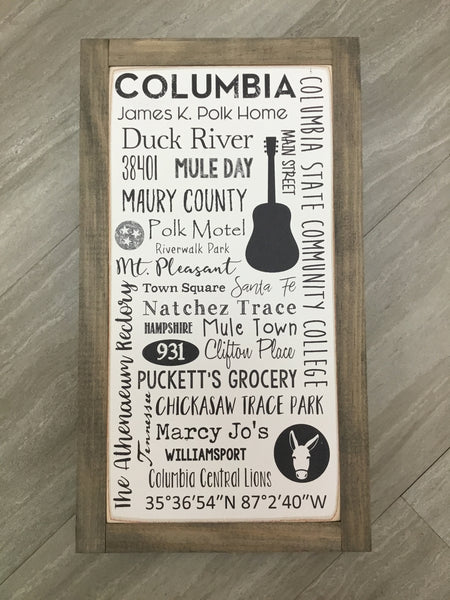 COLUMBIA
James K. Polk Home
Duck River
38401 MULE DAY
MAIN STREET
COLUMBIA STATE COMMUNITY COLLEGE
MAURY COUNTY
Polk Motel
Riverwalk Park
Mt. Pleasant
Town Square Santa Fe
Natchez Trace
HAMPSHIRE Mule Town
931 Clifton Place
PUCKETT'S GROCERY
The Athenaeum Rectory
Tennessee
CHICKASAW TRACE PARK
Marcy Jo's
WILLIAMSPORT
Columbia Central Lions
35°36'54"N 87°2'40"W